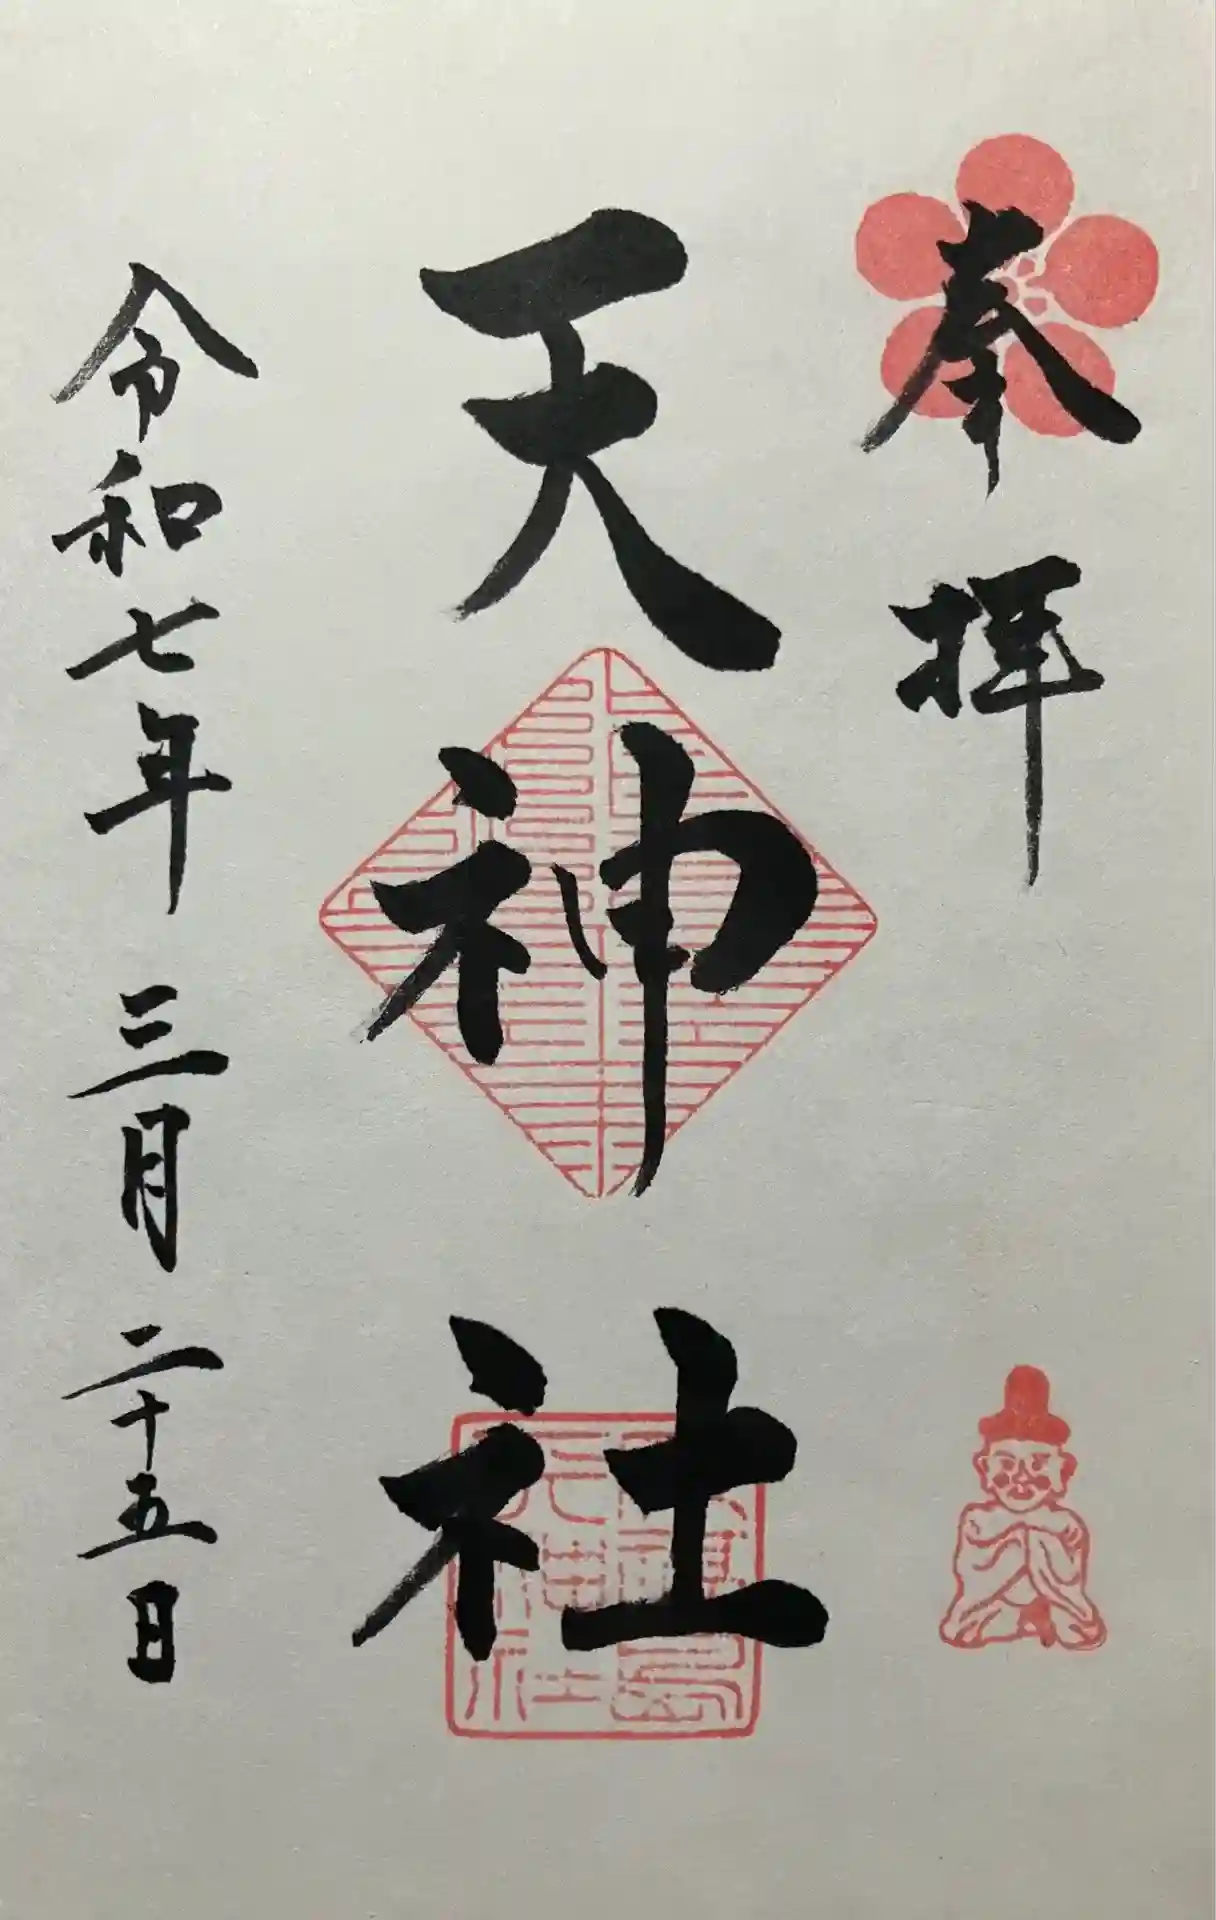 奉拝
天神社
令和七年 三月 二十五日